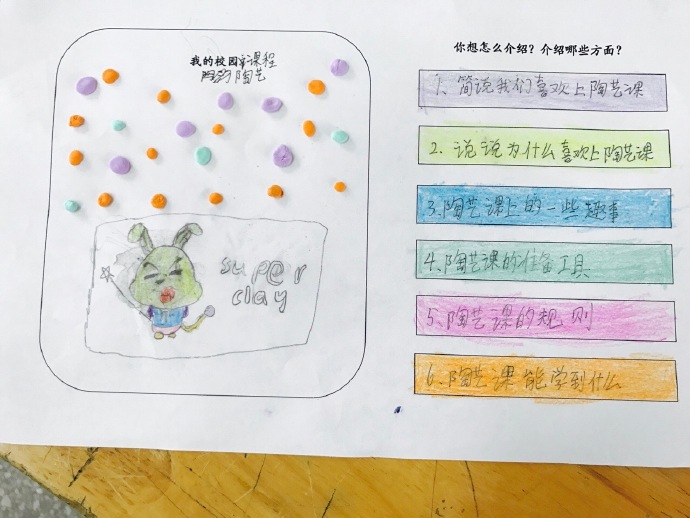 我的校园课程
陶韵陶艺
super
clay
你想怎么介绍？介绍哪些方面？
1、简说我们喜欢上陶艺课
2、说说为什么喜欢上陶艺课
3、陶艺课上的一些趣事
4、陶艺课的准备工具
5、陶艺课的规则
6、陶艺课能学到什么